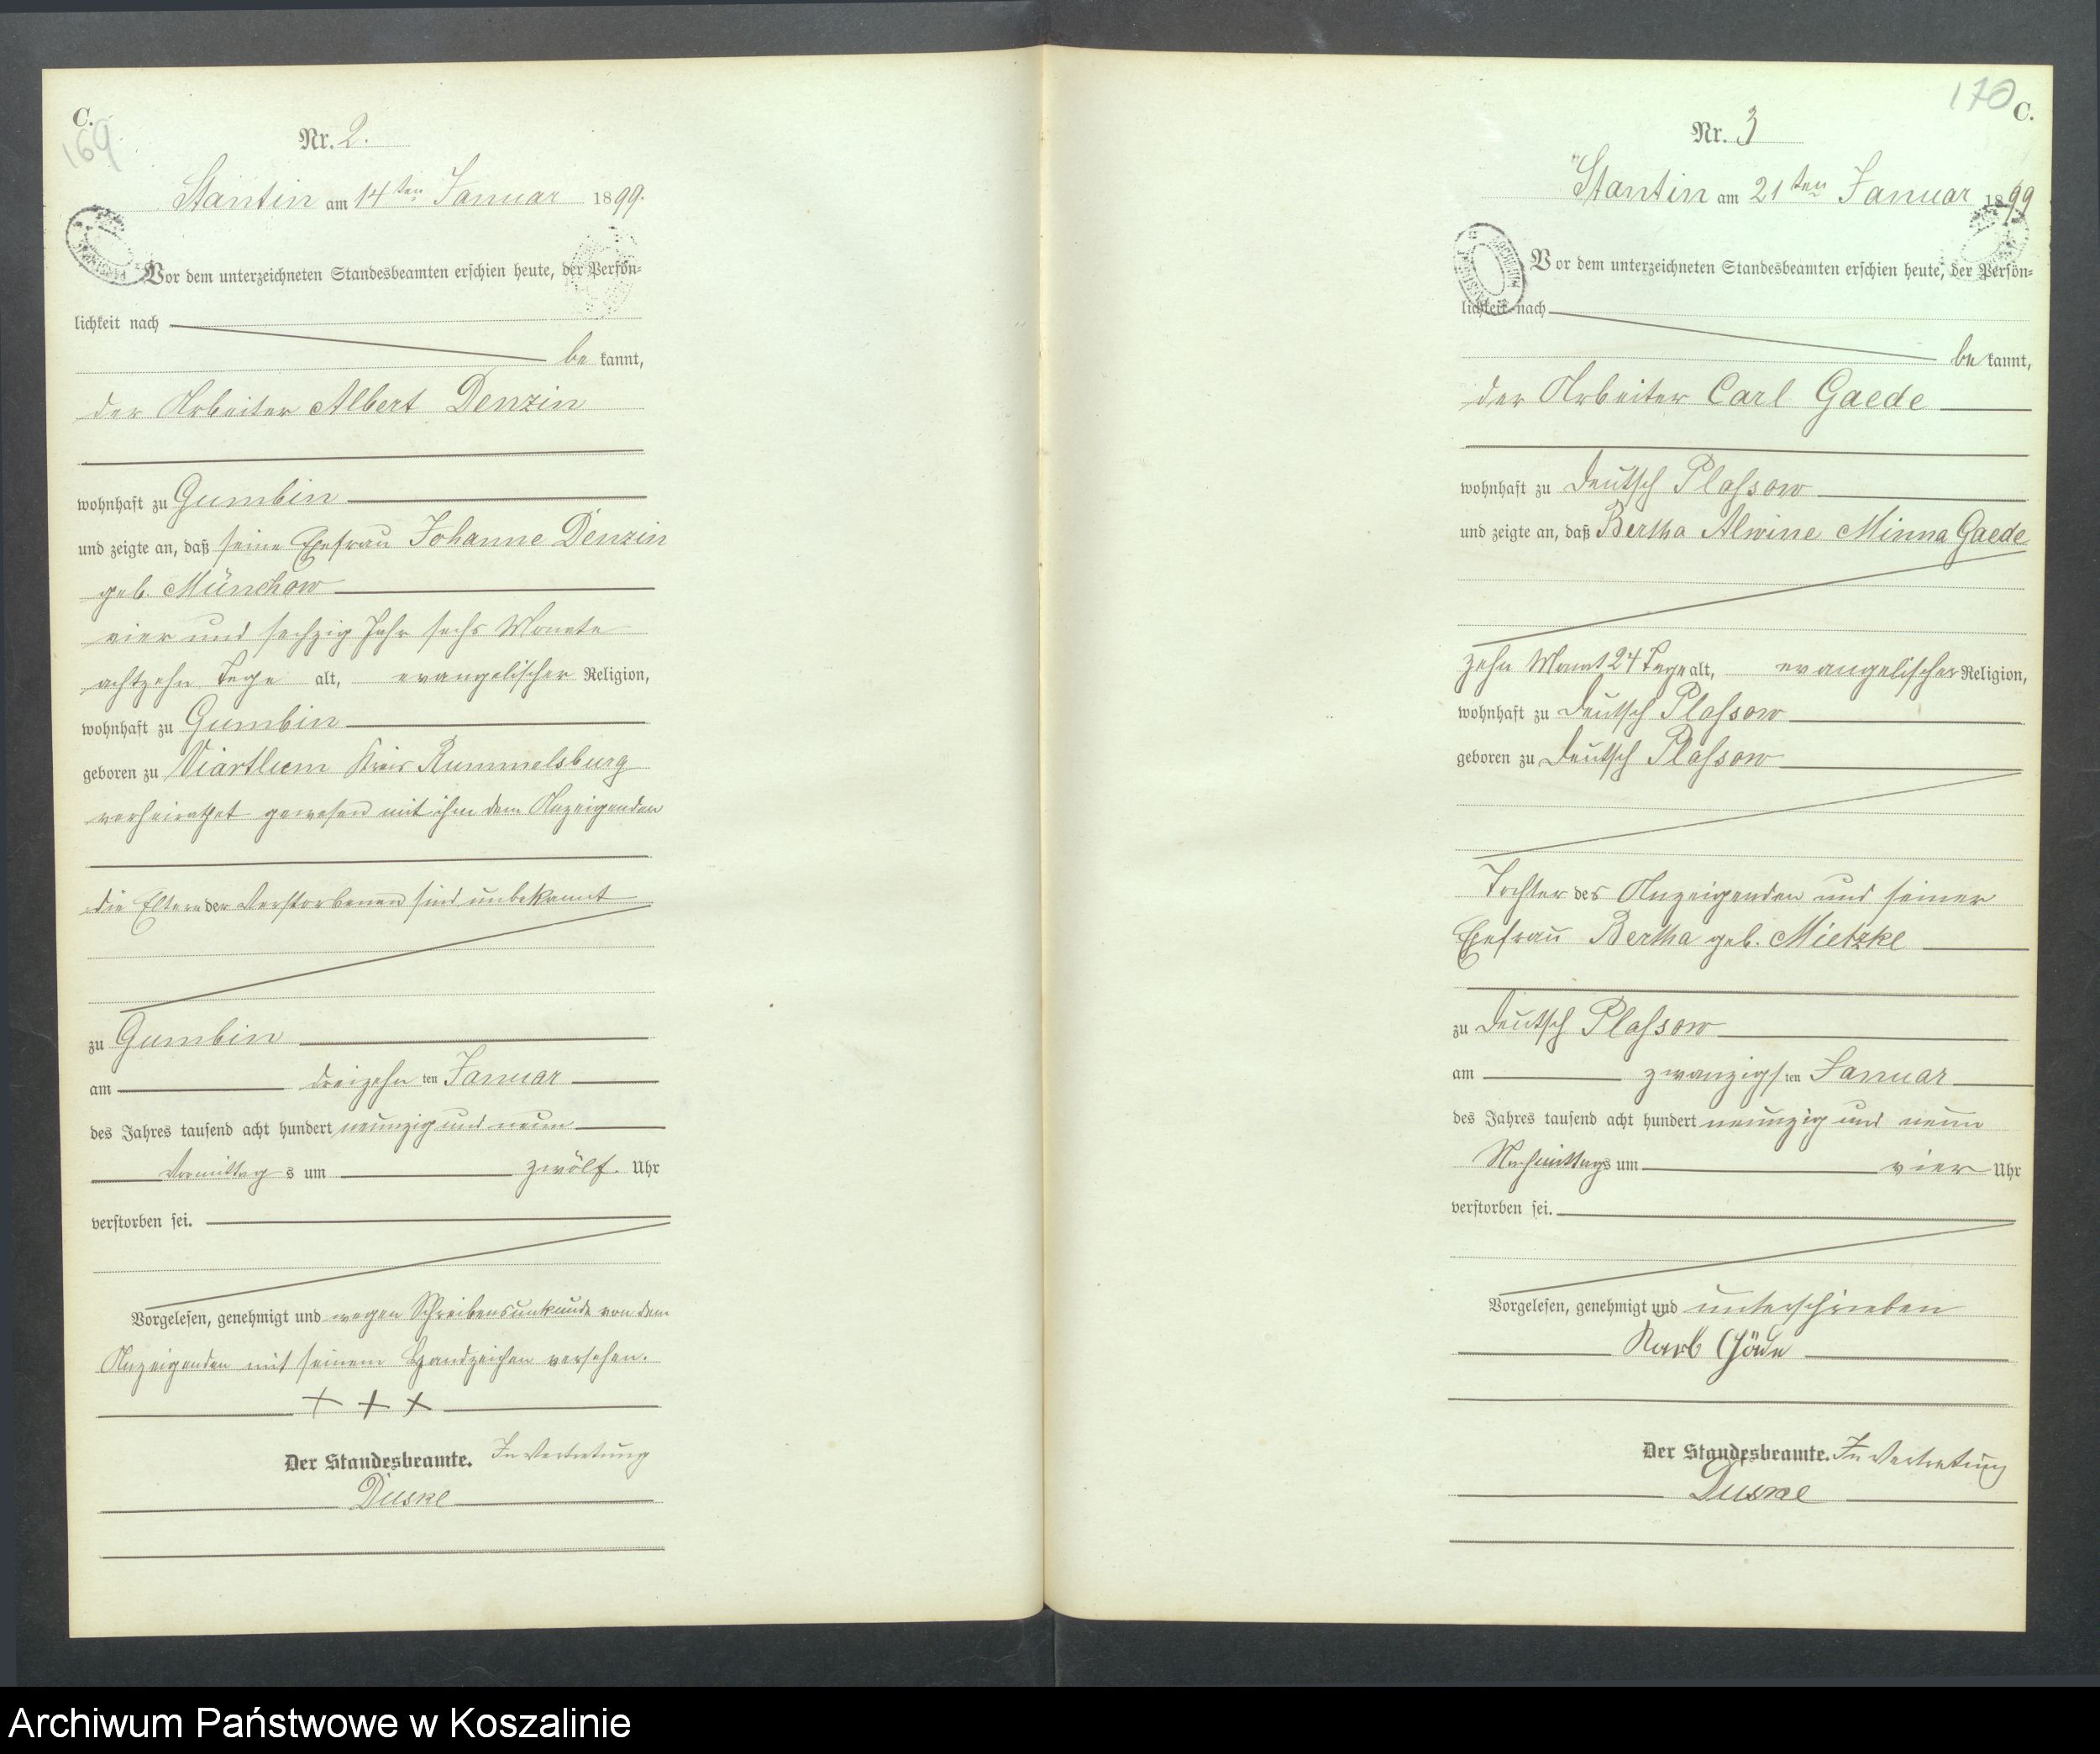 C.
169
Nr. 2.
Stantin am 14ten Januar 1899.
Vor dem unterzeichneten Standesbeamten erschien heute, der Persön-
lichkeit nach
be kannt,
der Arbeiter Albert Denzin
wohnhaft zu Gumbin
und zeigte an, daß seine Ehefrau Johanne Denzin
geb. Münchow
vier und sechzig Jahr sechs Monate
achtzehn Tage alt, evangelischer Religion,
wohnhaft zu Gumbin
geboren zu Viartlum Kreis Rummelsburg
verheirathet gewesen mit ihm dem Anzeigenden
die Eltern der Verstorbenen sind unbekannt
zu Gumbin
am dreizehn ten Januar
des Jahres tausend acht hundert neunzig und neun
Vormittag s um zwölf Uhr
verstorben sei.
Vorgelesen, genehmigt und wegen Schreibensunkunde von dem
Anzeigenden mit seinem Handzeichen versehen.
+ + +
Der Standesbeamte. In Vertretung
Duske
170
C.
Nr. 3
Stantin am 21ten Januar 1899
Vor dem unterzeichneten Standesbeamten erschien heute, der Persön-
lichkeit nach
be kannt,
der Arbeiter Carl Gaede
wohnhaft zu Deutsch Plassow
und zeigte an, daß Bertha Alwine Minna Gaede
zehn Monat 24 Tage alt, evangelischer Religion,
wohnhaft zu Deutsch Plassow
geboren zu Deutsch Plassow
Tochter des Anzeigenden und seiner
Ehefrau Bertha geb. Mietzke
zu Deutsch Plassow
am zwanzigsten Januar
des Jahres tausend acht hundert neunzig und neun
Nachmittags um vier Uhr
verstorben sei.
Vorgelesen, genehmigt und unterschrieben
Karl Gäde
Der Standesbeamte. In Vertretung
Duske
Archiwum Państwowe w Koszalinie